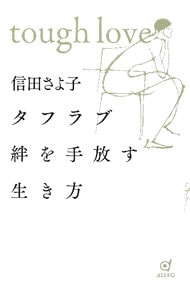 tough love
信田さよ子
タフラブ
絆を手放す
生き方